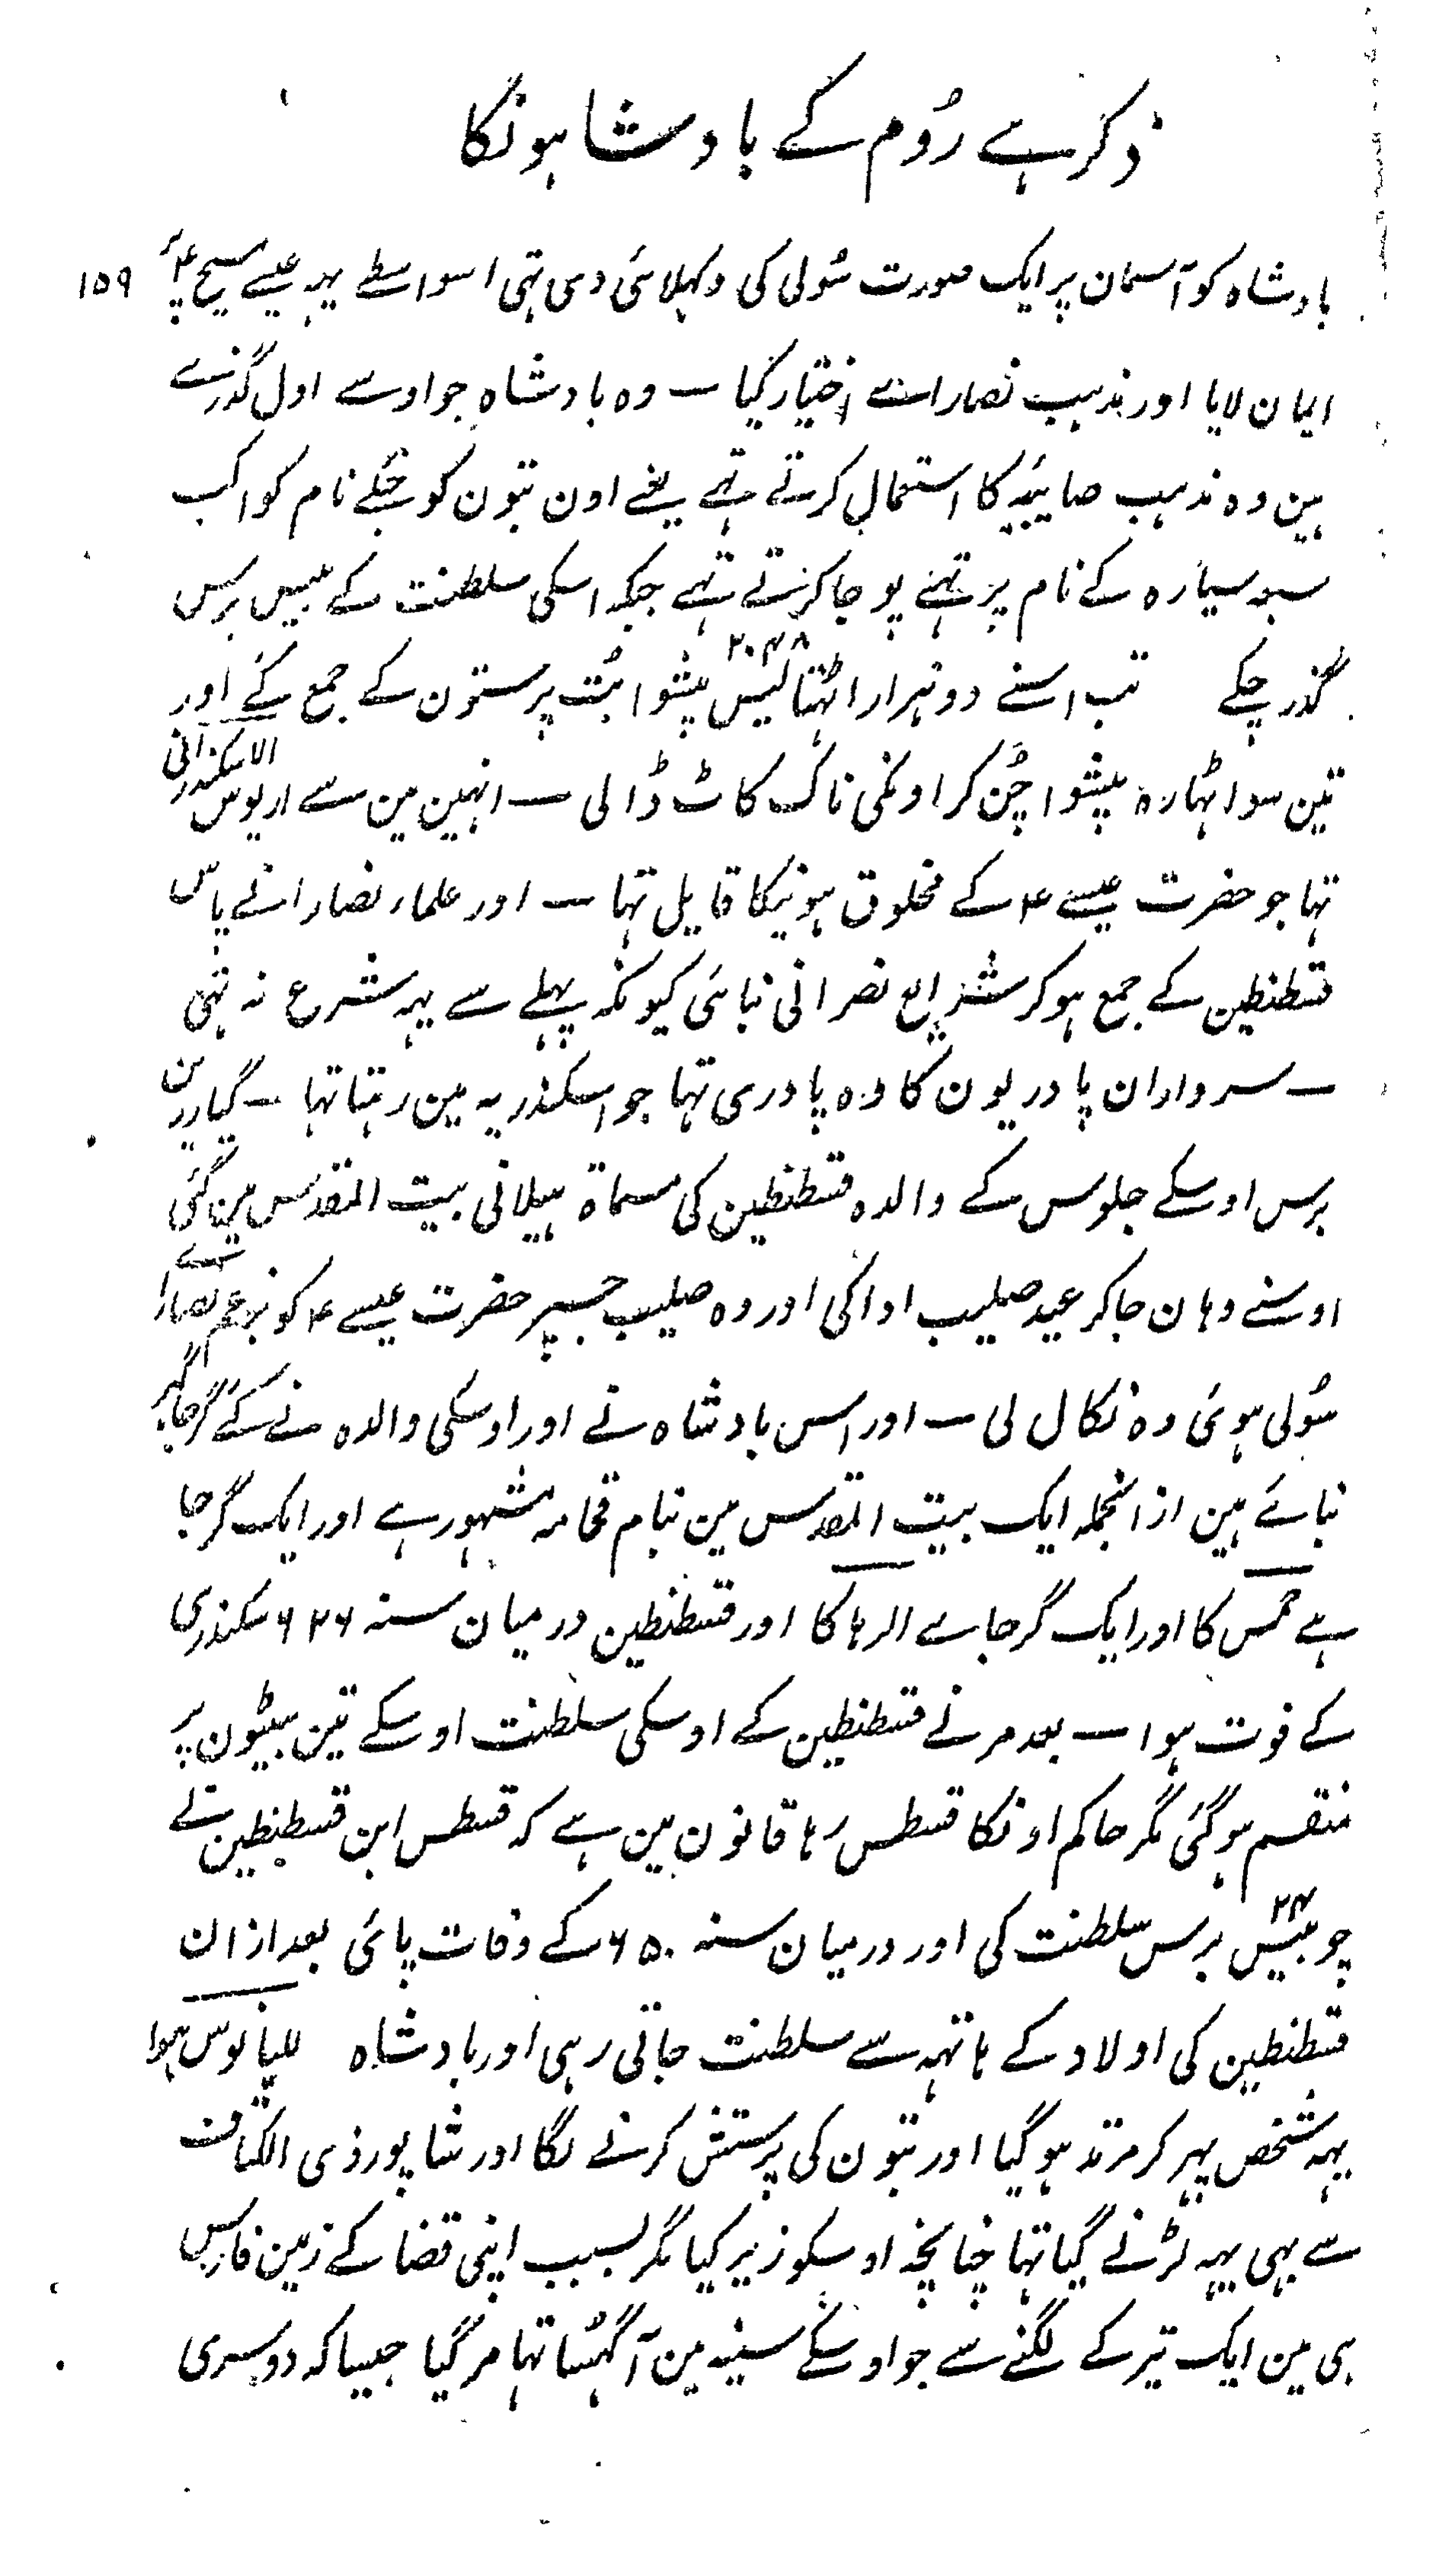 ذکر ہے رُوم کے بادشاہونکا
۱۵۹
بادشاہ کو آسمان پر ایک صورت سُولی کی دکہلائی دی تہی اسواسطے یہہ عیسے مسیح ؑ پر
ایمان لایا اور مذہب نصارائے اختیار کیا ــ وہ بادشاہ جو اوسے اول گذرے
ہین وہ مذہب صابئیہ کا استعمال کرتے تہے یعنے اون بتون کو جنکے نام کواکب
سبعہ سیارہ کے نام پر تہے پوجا کرتے تہے جبکہ اسکی سلطنت کے بیس برس
گذر چکے تب اسنے دو ہزار اٹہتالیس ۲۰۴۸ پیشوا بُت پرستون کے جمع کئے اور
تین سو اٹہارہ پیشوا چُن کر اونکی ناک کاٹ ڈالی ــ انہین مین سے اریوس الاسکندرانی
تہا جو حضرت عیسے ؑ کے مخلوق ہونیکا قایل تہا ــ اور علماء نصارائے پاس
قسطنطین کے جمع ہو کر شرایع نصرانی بنائی کیونکہ پہلے سے یہہ شرع نہ تہی
ــ سرداران پادریون کا وہ پادری تہا جو اسکندریہ مین رہتا تہا ــ گیارہین
برس اوسکے جلوس کے والدہ قسطنطین کی مسماة ہیلانی بیت المقدس مین گئی
اوسنے وہان جا کر عید صلیب ادا کی اور وہ صلیب جسپر حضرت عیسے ؑ کو بزعم نصارائے
سُولی ہوئی وہ نکال لی ــ اور اس بادشاہ نے اور اوسکی والدہ نے کئے گرجا گہر
بنائے ہین ازانجملہ ایک بیت المقدس مین بنام قمامہ مشہور ہے اور ایک گرجا
ہے حمص کا اور ایک گرجا ہے الرہا کا اور قسطنطین درمیان سنہ ۶۲۶ سکندری
کے فوت ہوا ــ بعد مرنے قسطنطین کے اوسکی سلطنت اوسکے تین بیٹیون پر
منقسم ہو گئی مگر حاکم اونکا قسطس رہا قانون مین ہے کہ قسطس ابن قسطنطین نے
چوبیس ۲۴ برس سلطنت کی اور درمیان سنہ ۶۵۰ کے وفات پائی بعد ازان
قسطنطین کی اولاد کے ہاتہہ سے سلطنت جاتی رہی اور بادشاہ للیانوس ہوا
یہہ شخص پہر کر مرتد ہو گیا اور بتون کی پرستش کرنے لگا اور شاپور ذی الاکتاف
سے بہی یہہ لڑنے گیا تہا چنانچہ اوسکو زیر کیا مگر بسبب اپنی قضا کے زمین فارس
ہی مین ایک تیر کے لگنے سے جو اوسکے سینہ مین آ گہسا تہا مر گیا جیسا کہ دوسری